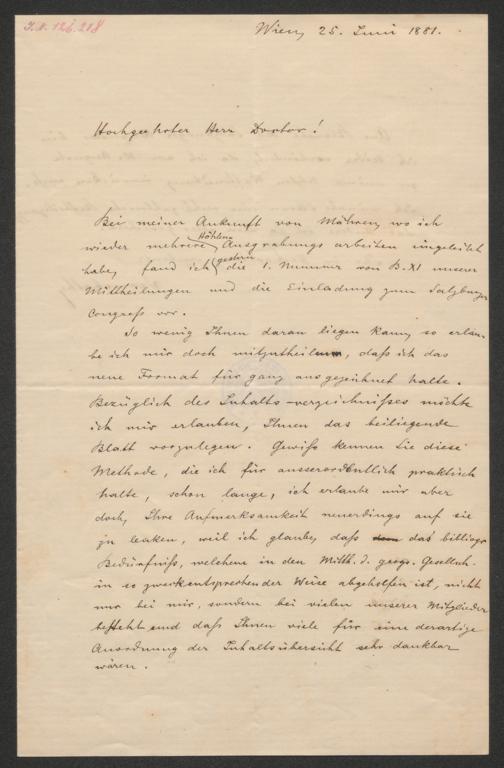 I.N. 126.218
Wien, 25. Juni 1881.
Hochgeehrter Herr Doctor!
Bei meiner Ankunft von Mähren, wo ich
wieder mehrere Höhlen Ausgrabungs arbeiten eingeleitet
habe, fand ich gestern die 1. Nummer von B. XI unserer
Mittheilungen und die Einladung zum Salzburger
Congress vor.
So wenig Ihnen daran liegen kann, so erlau-
be ich mir doch mitzutheilen, daß ich das
neue Format für ganz ausgezeichnet halte.
Bezüglich des Inhalts-verzeichnißes möchte
ich mir erlauben, Ihnen das beiliegende
Blatt vorzulegen. Gewiß kennen Sie diese
Methode, die ich für ausserordentlich praktisch
halte, schon lange, ich erlaube mir aber
doch, Ihre Aufmerksamkeit neuerdings auf sie
zu lenken, weil ich glaube, daß das bibliogr.
Bedürfniß, welchem in den Mitth. d. geogr. Gesellsch.
in so zweckentsprechender Weise abgeholfen ist, nicht
nur bei mir, sondern bei vielen unserer Mitglieder
besteht und daß Ihnen viele für eine derartige
Anordnung der Inhaltsübersicht sehr dankbar
wären.